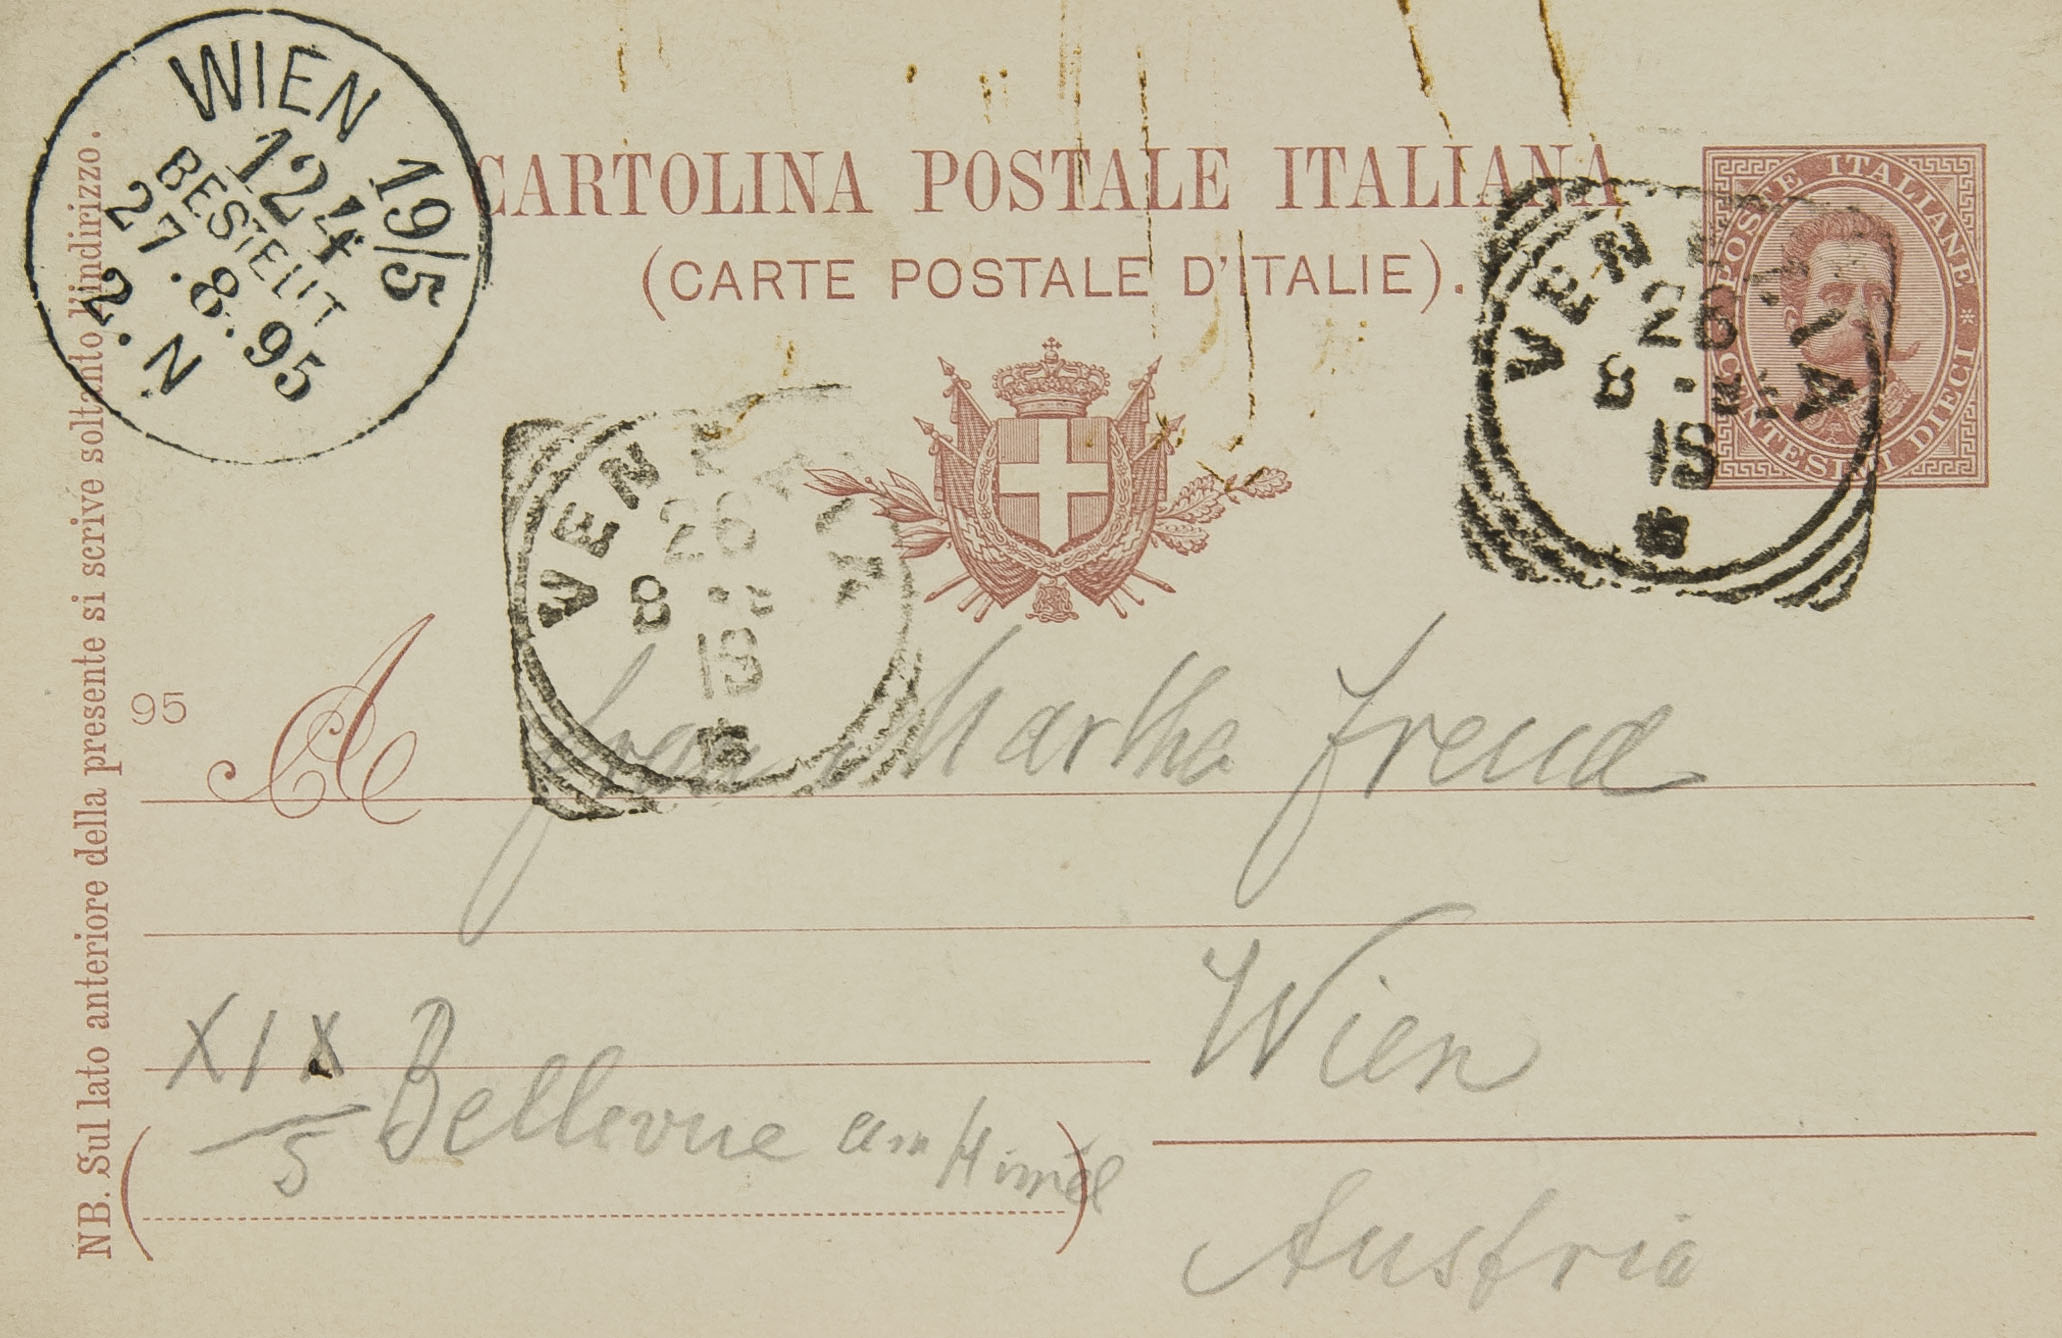 WIEN 19/5
124
BESTELLT
27.8.95
2.N
CARTOLINA POSTALE ITALIANA
(CARTE POSTALE D'ITALIE).
POSTE ITALIANE * CENTESIMI DIECI *
VENEZIA
26
8 - 95
1S
VENEZIA
26
8
1S
NB. Sul lato anteriore della presente si scrive soltanto l'indirizzo.
95
A frau Martha Freud
Wien
XIX
5 Bellevue am Himel
Austria